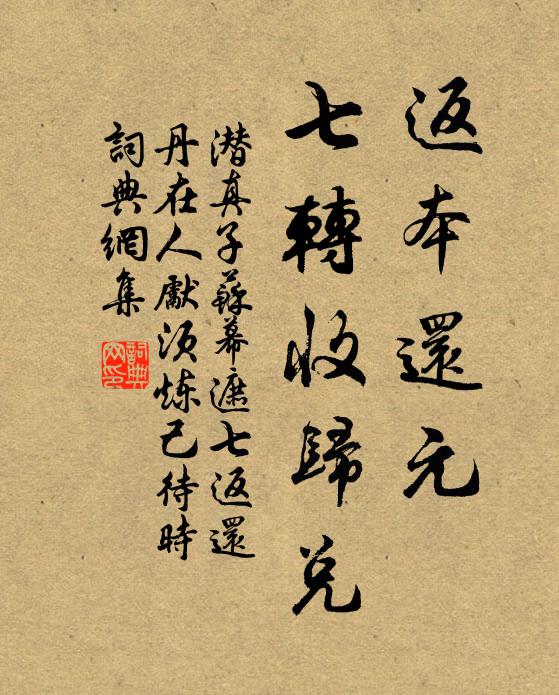 返本還元
七轉收歸兌
潛真子蘇幕遮七返還
丹在人獻須煉己待時
詞典網集
詞典
网印